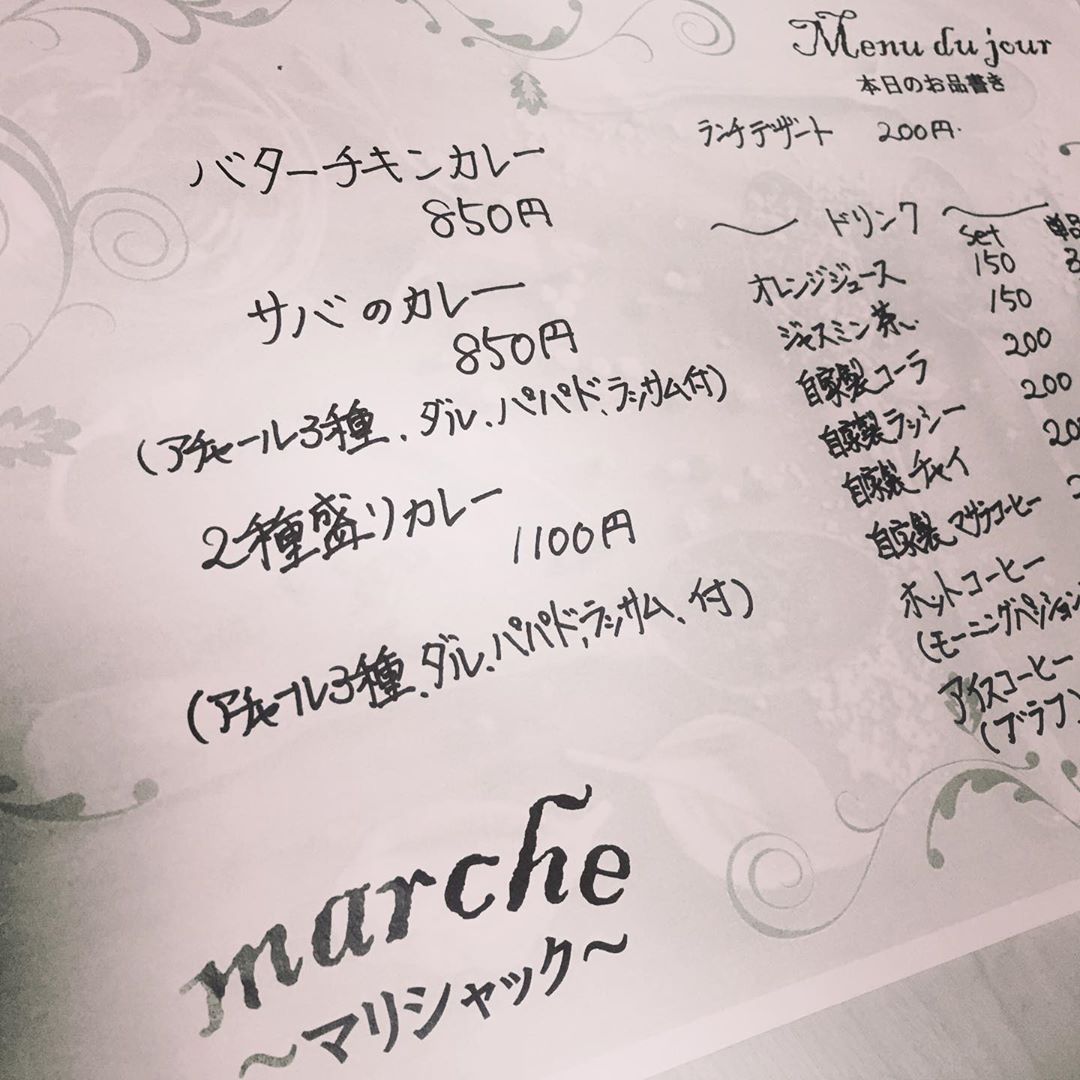 Menu du jour
本日のお品書き
バターチキンカレー
850円
サバのカレー
850円
(アチャール3種、ダル、パパド、ラッサム付)
2種盛りカレー
1100円
(アチャール3種、ダル、パパド、ラッサム、付)
ランチデザート 200円.
〜 ドリンク 〜
set 単品
オレンジジュース 150
ジャスミン茶 150
自家製コーラ 200
自家製ラッシー 200
自家製チャイ 20
自家製マサラコーヒー
ホットコーヒー
(モーニングパッション
アイスコーヒー
(ブラフ
marche
〜マリシャック〜